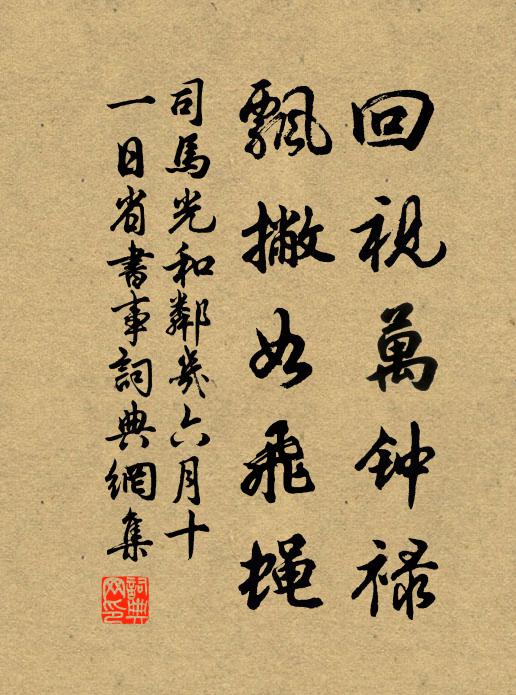 回視萬钟禄
飄撇如飛蝇
司馬光和鄰幾六月十
一日省書事詞典網集
詞典網印